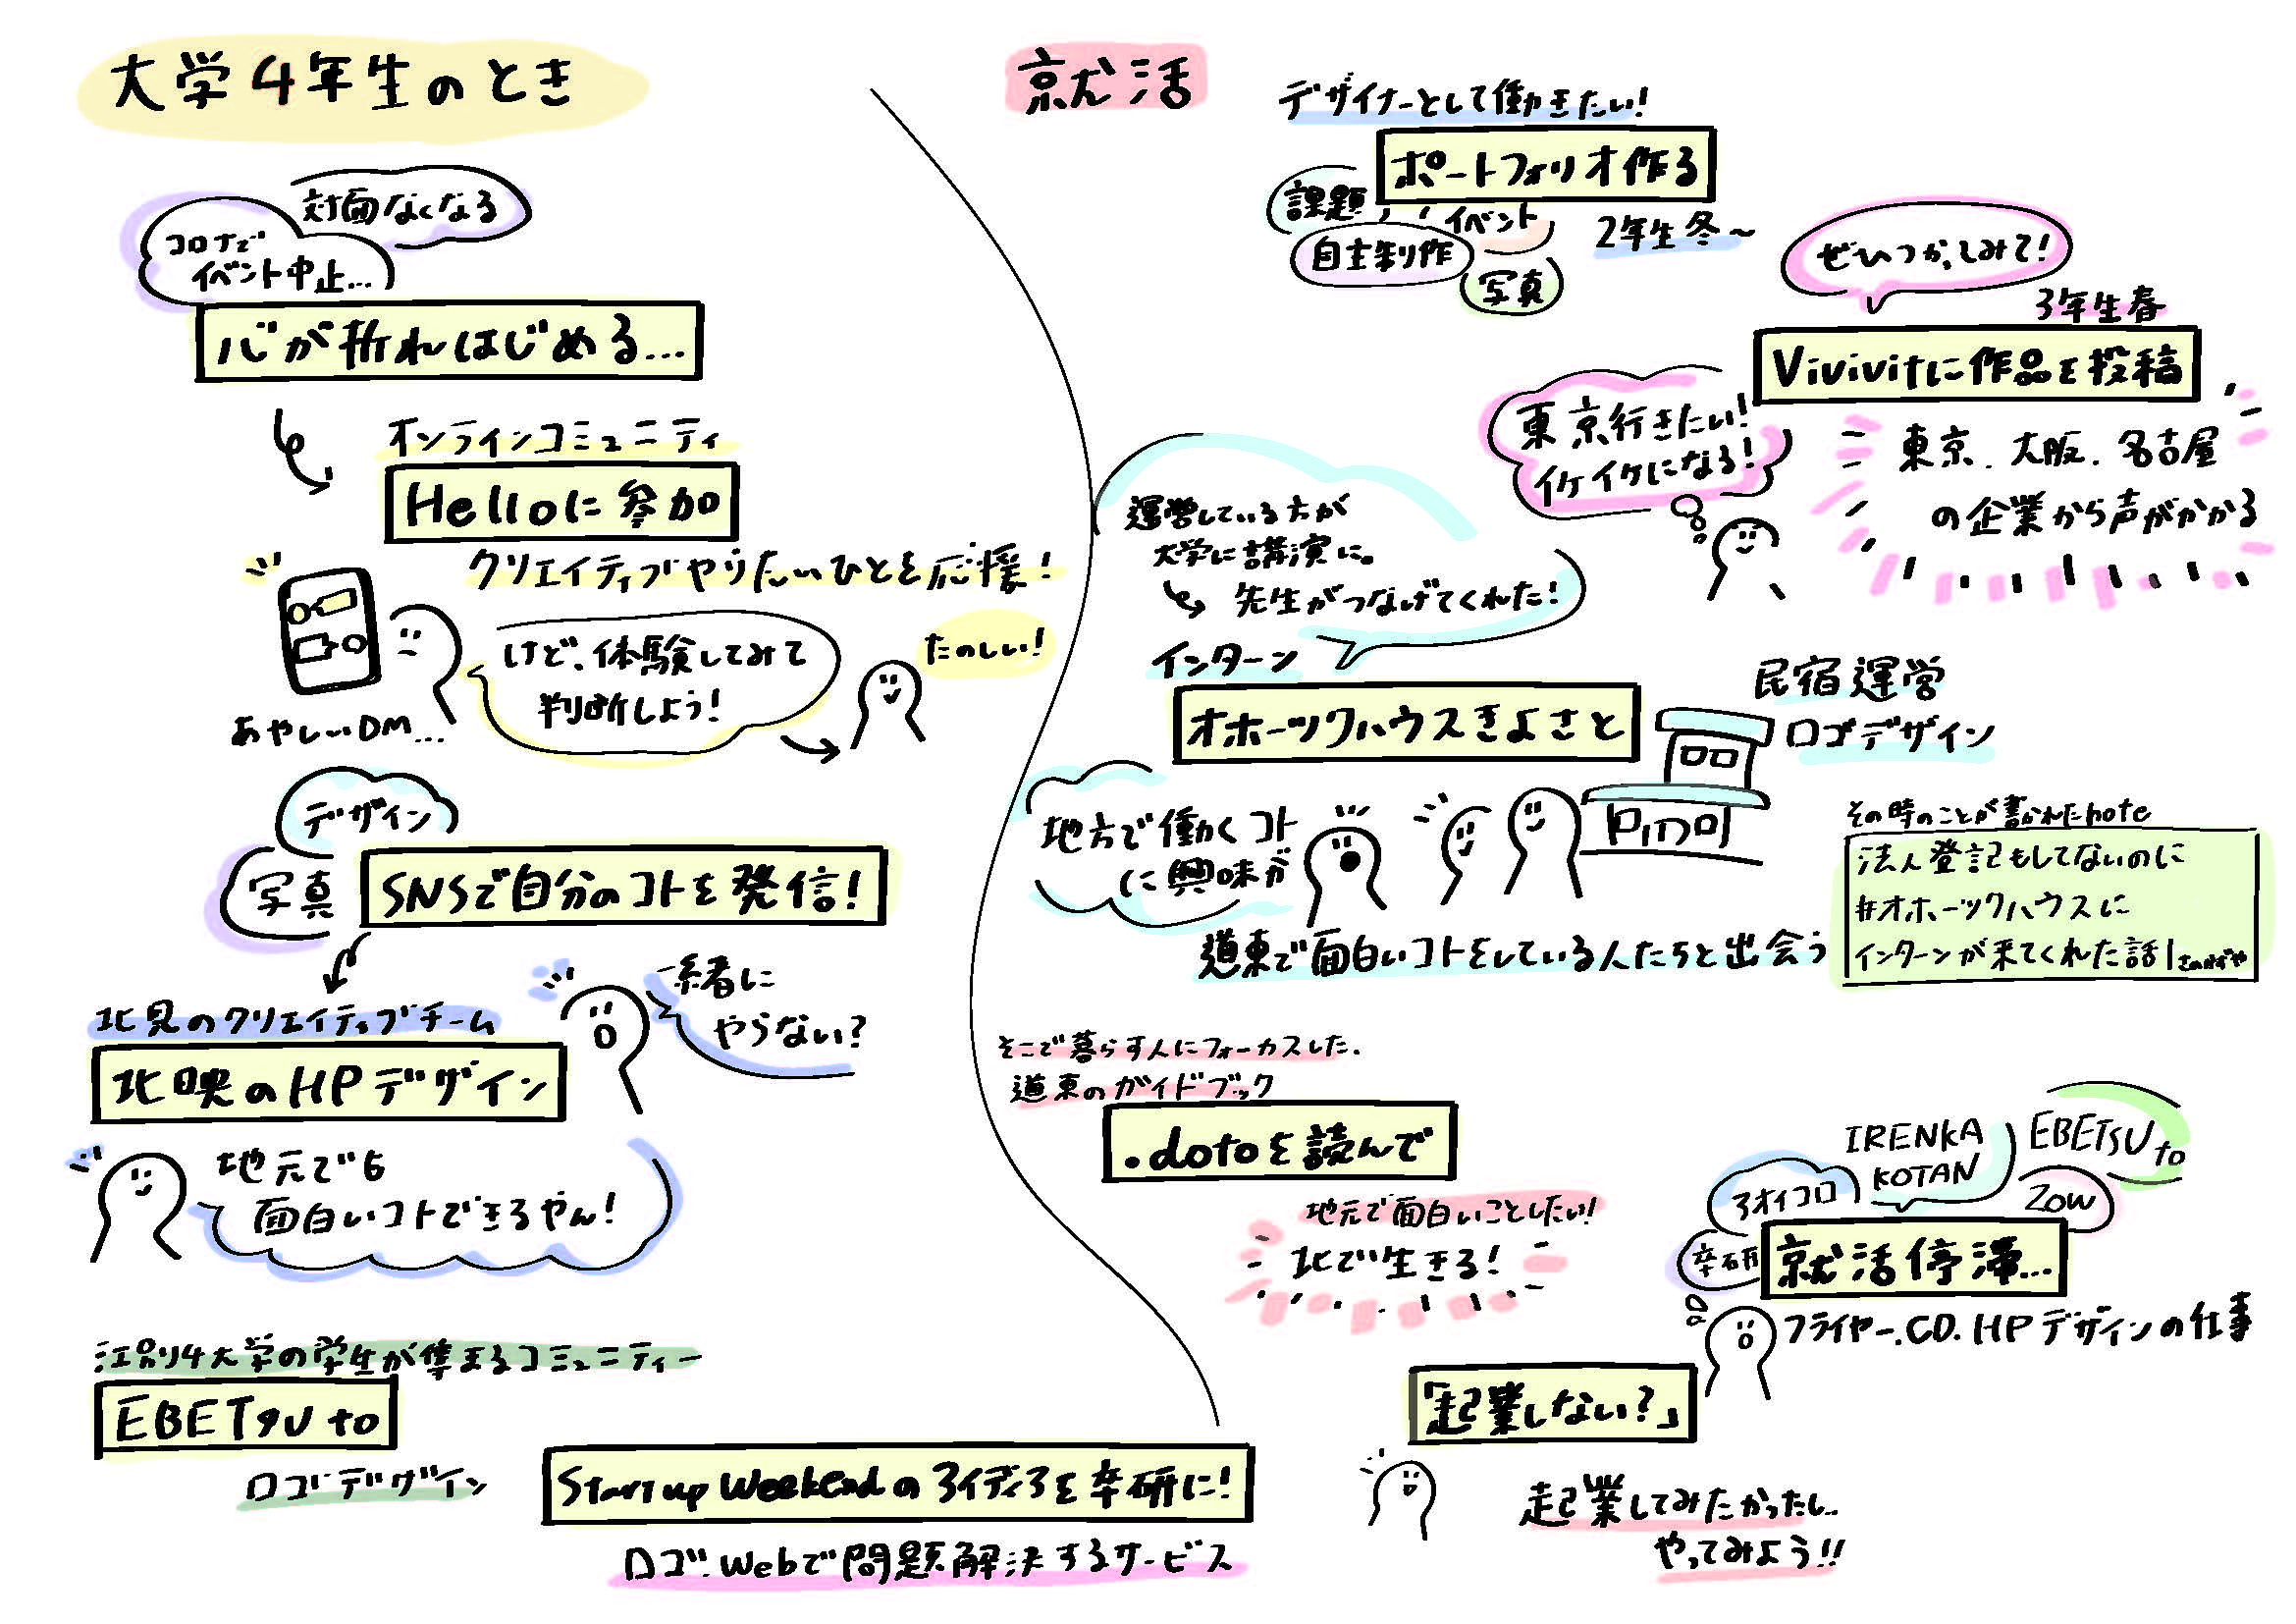 大学4年生のとき
対面なくなる
コロナで
イベント中止...
心が折れはじめる...
オンラインコミュニティ
Helloに参加
クリエイティブやりたいひとを応援!
あやしいDM...
けど、体験してみて
判断しよう!
たのしい!
デザイン
写真
SNSで自分のコトを発信!
一緒に
やらない?
北見のクリエイティブチーム
北映のHPデザイン
地元でも
面白いコトできるやん!
江別4大学の学生が集まるコミュニティー
EBETSU to
ロゴデザイン
Startup Weekendのアイディアを卒研に!
ロゴ.Webで問題解決するサービス
就活
デザイナーとして働きたい!
ポートフォリオ作る
課題
イベント
自主制作
写真
2年生冬~
ぜひつかってみて!
3年生春
Vivivitに作品を投稿
東京行きたい!
イケイケになる!
東京.大阪.名古屋
の企業から声がかかる
運営している方が
大学に講演に。
先生がつなげてくれた!
インターン
オホーツクハウスきよさと
民宿運営
ロゴデザイン
地方で働くコト
に興味が
道東で面白いコトをしている人たちと出会う
その時のことが書かれたnote
法人登記もしてないのに
#オホーツクハウスに
インターンが来てくれた話|
そこで暮らす人にフォーカスした.
道東のガイドブック
.dotoを読んで
地元で面白いことしたい!
北で生きる!
IRENKA
KOTAN
EBETSU
to
アオイコロ
ZOW
卒研
就活停滞...
フライヤー.CD.HPデザインの仕事
「起業しない?」
起業してみたかったし..
やってみよう!!